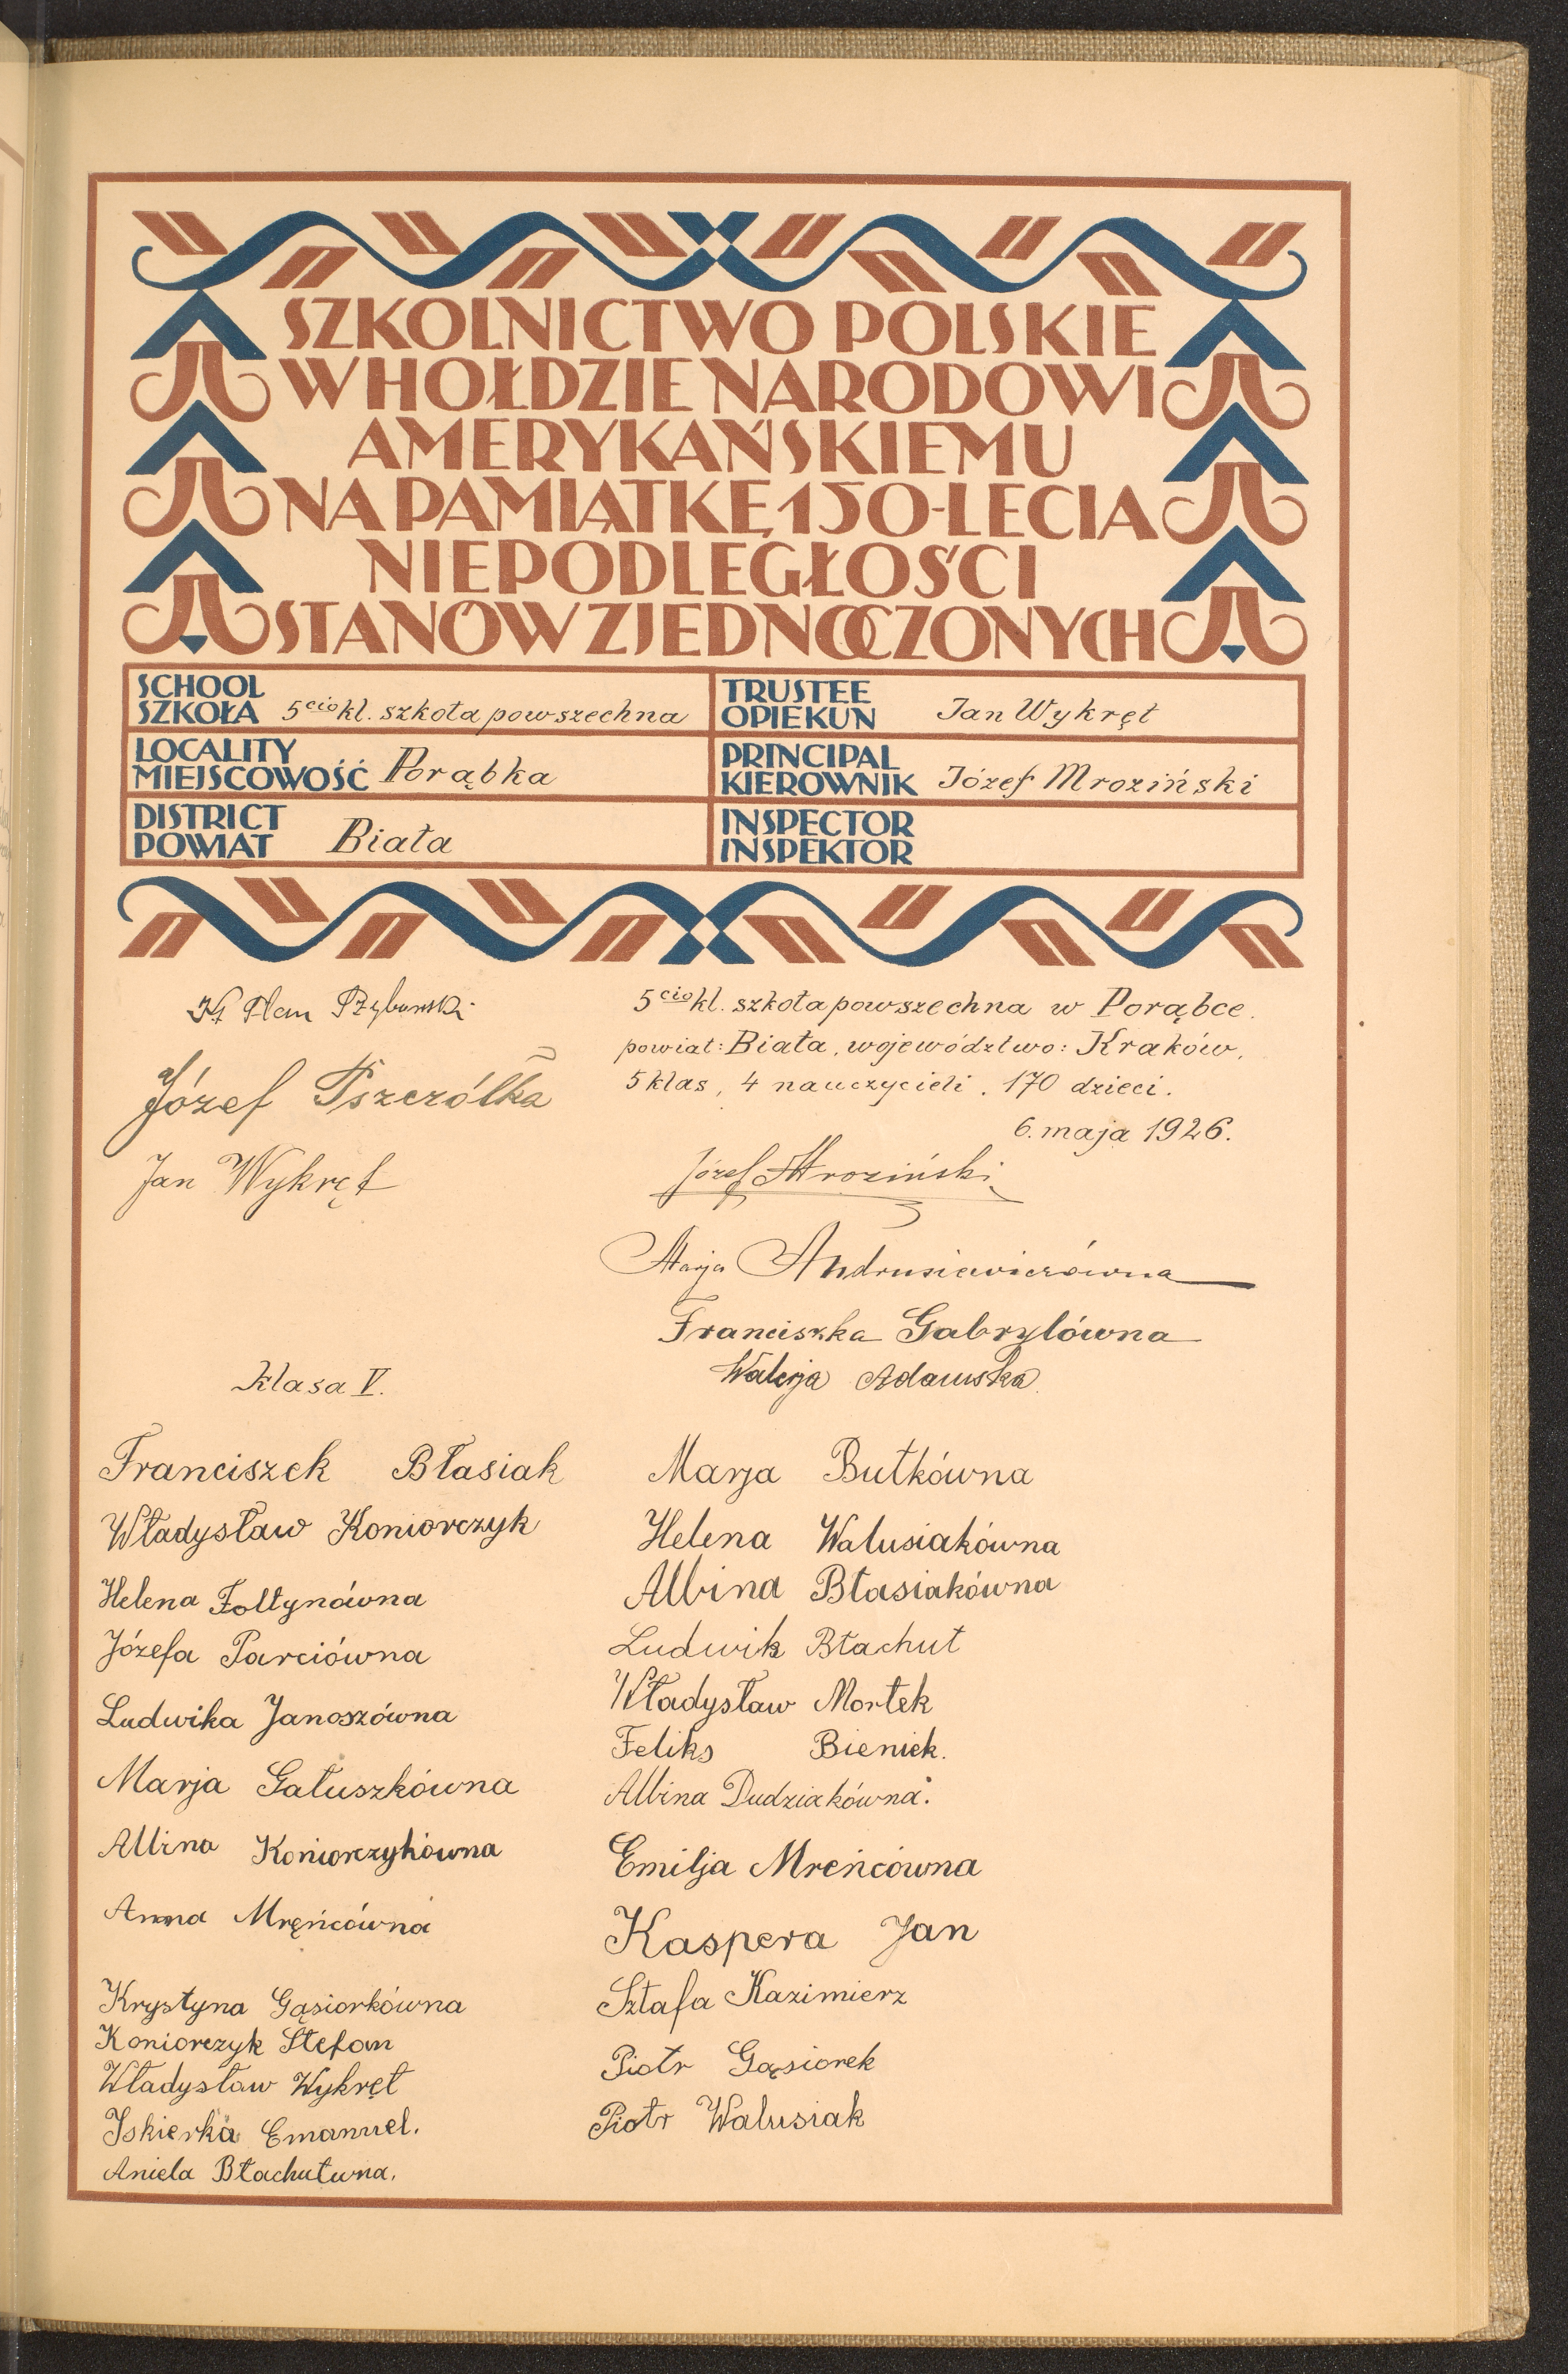 SZKOLNICTWO POLSKIE
W HOŁDZIE NARODOWI
AMERYKAŃSKIEMU
NA PAMIĄTKĘ 150-LECIA
NIEPODLEGŁOŚCI
STANÓW ZJEDNOCZONYCH
SCHOOL
SZKOŁA 5cio kl. szkoła powszechna
TRUSTEE
OPIEKUN Jan Wykręt
LOCALITY
MIEJSCOWOŚĆ Porąbka
PRINCIPAL
KIEROWNIK Józef Mroziński
DISTRICT
POWIAT Biała
INSPECTOR
INSPEKTOR
Józef Pszczółka
Jan Wykręt
5cio kl. szkoła powszechna w Porąbce.
powiat: Biała, województwo: Kraków,
5 klas, 4 nauczycieli. 170 dzieci.
6. maja 1926.
Józef Mroziński
Marja Andrusiewiczówna
Franciszka Gabrylówna
Walerja Adamska
Klasa V.
Franciszek Błasiak
Władysław Koniorczyk
Helena Fołtynówna
Józefa Parciówna
Ludwika Janoszówna
Marja Gałuszkówna
Albina Koniorczykówna
Anna Mręńcówna
Krystyna Gąsiorkówna
Koniorczyk Stefan
Władysław Wykręt
Iskierka Emanuel.
Aniela Błachutwna.
Marja Butkówna
Helena Walusiakówna
Albina Błasiakówna
Ludwik Błachut
Władysław Mortek
Feliks Bieniek.
Albina Dudziakówna.
Emilja Mreńcówna
Kaspera Jan
Sztafa Kazimierz
Piotr Gąsiorek
Piotr Walusiak